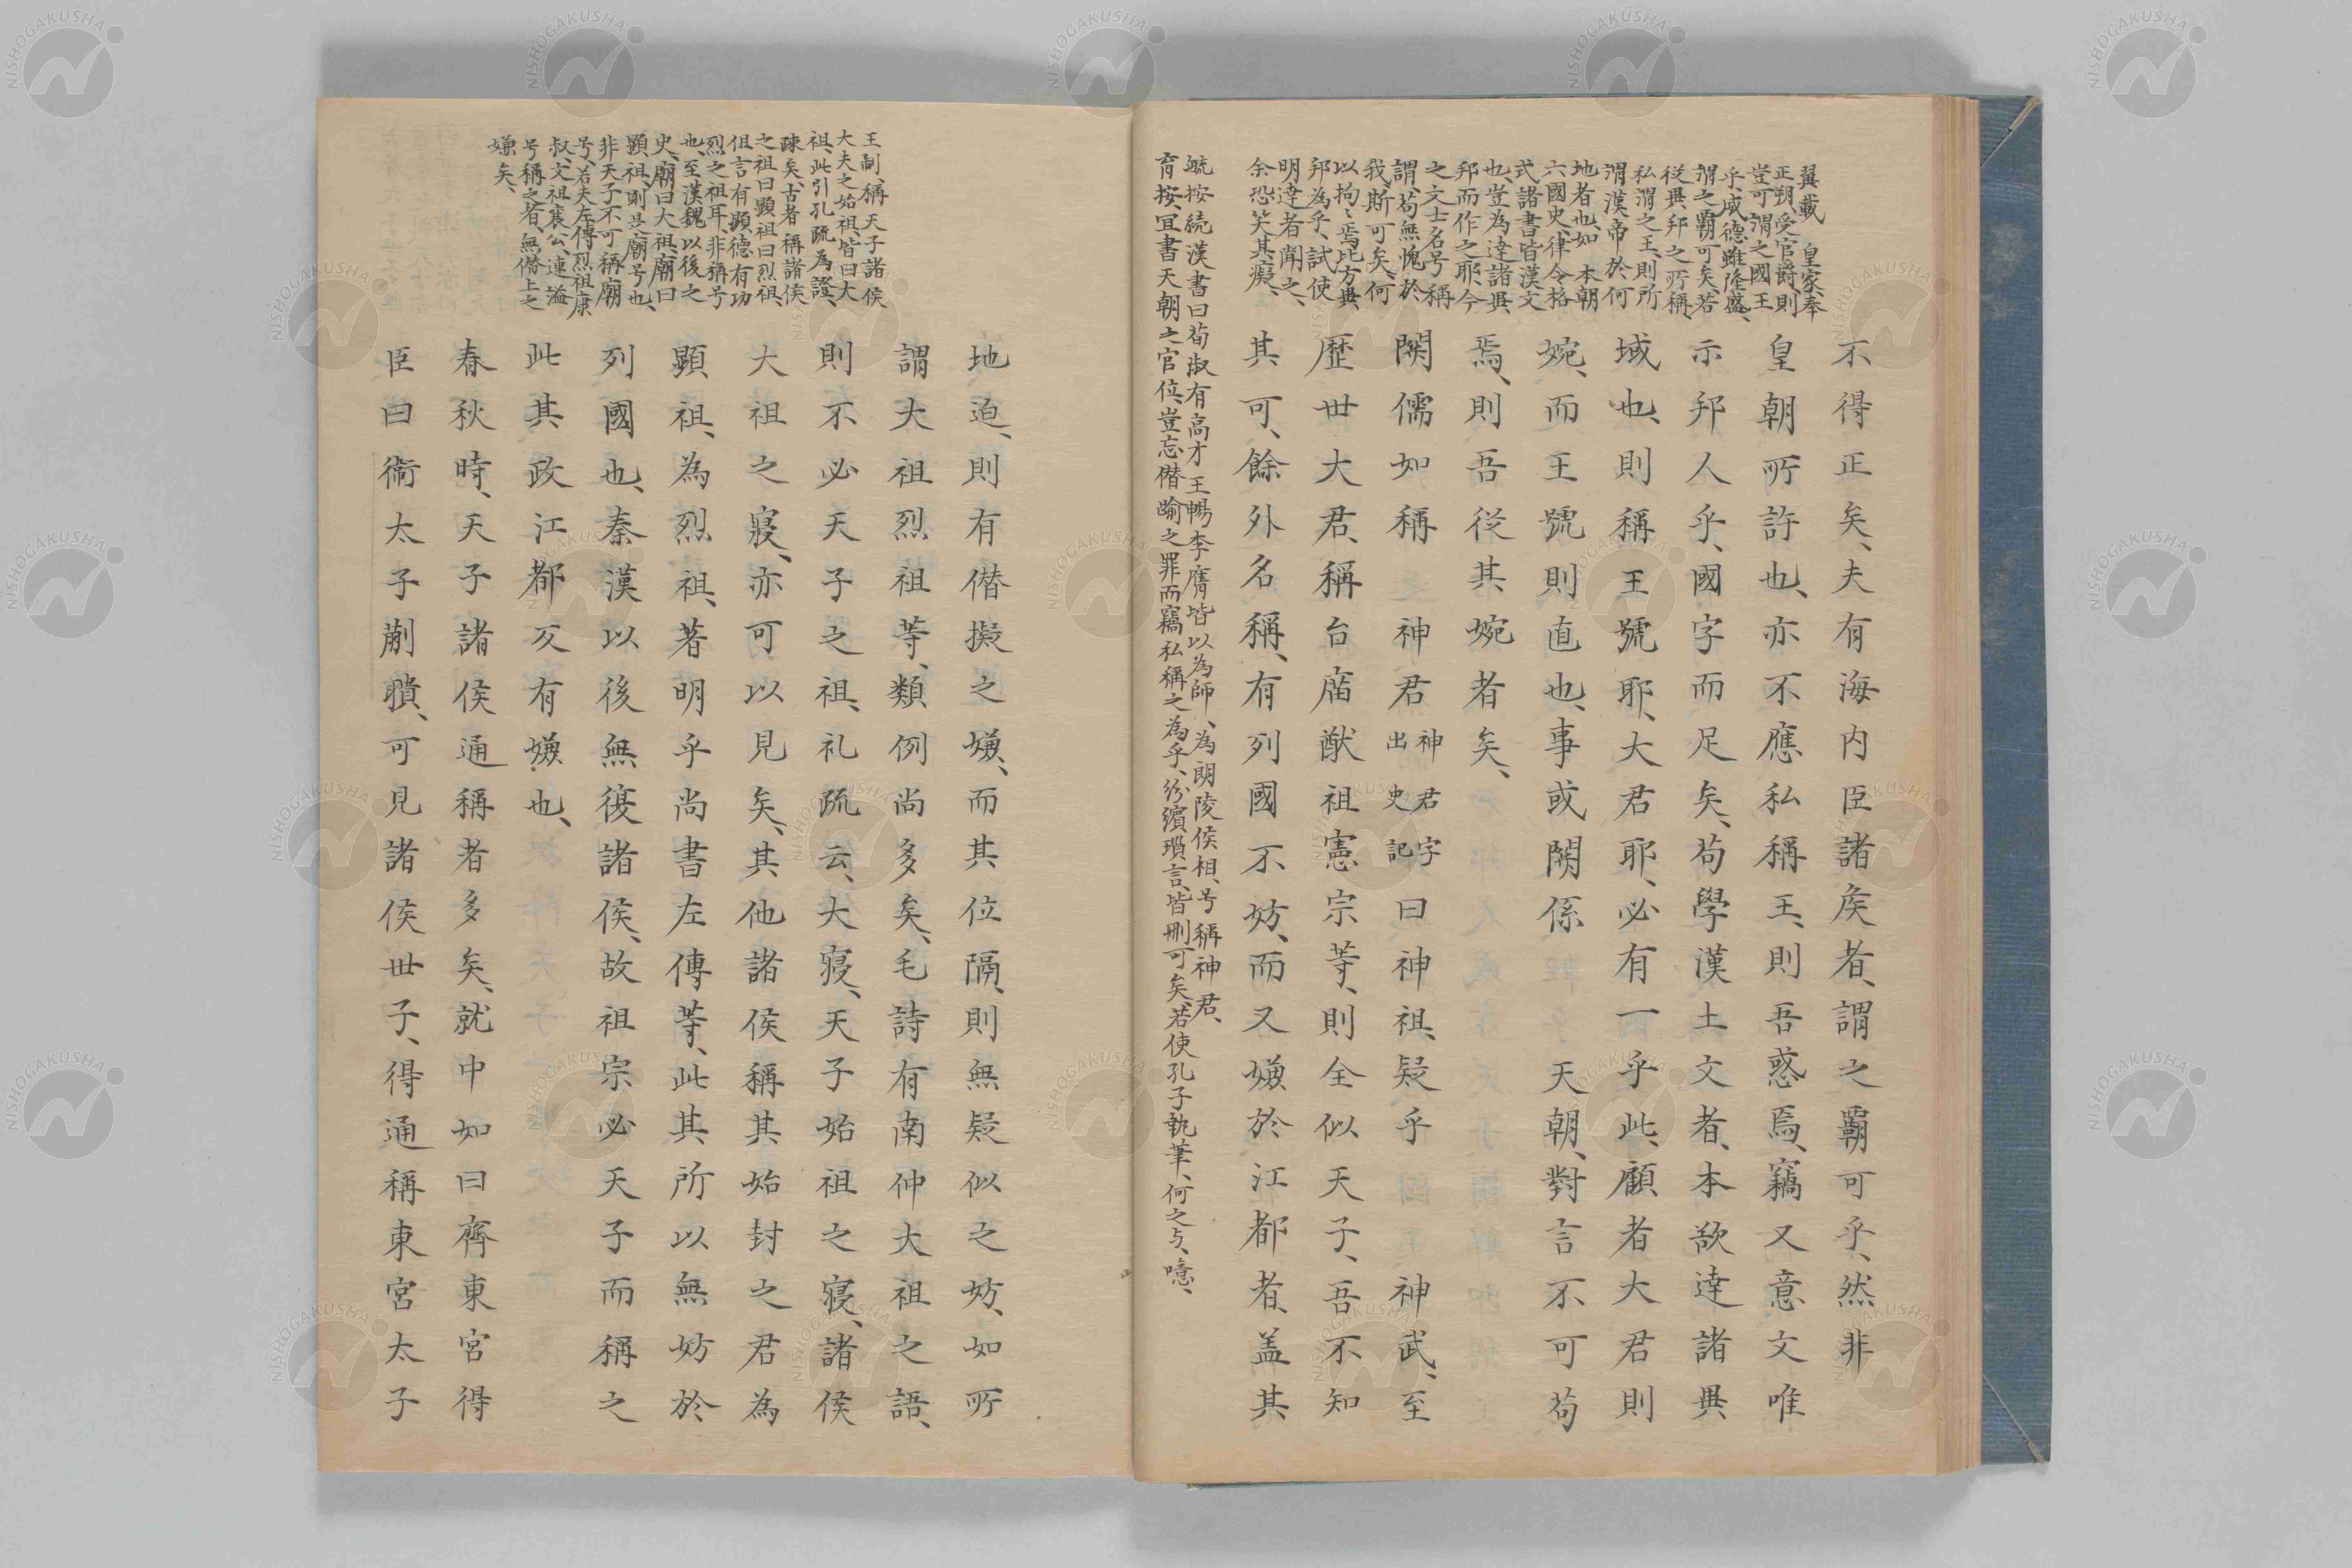 翼載 皇家、奉
正朔、受官爵、則
豈可謂之國王
乎、威德雖隆盛、
謂之覇可矣、若
從異邦之所稱、
私謂之王、則所
謂漢帝於何
地者也、如 本朝
六國史、律令格
式諸書皆漢文
也、豈為達諸異
邦而作之耶、今
之文士名号稱
謂、苟無愧於
我、斯可矣、何
以拘〻焉比方異
邦為乎、試使
明達者聞之、
余恐笑其癡、
不得正矣、夫有海内臣諸侯者、謂之覇可乎、然非
皇朝所許也、亦不應私稱王、則吾惑焉、竊又意文唯
示邦人乎、國字而足矣、苟學漢土文者、本欲達諸異
域也、則稱王號耶、大君耶、必有一乎此、顧者大君則
婉、而王號則直也、事或関係 天朝、對言不可苟
焉、則吾從其婉者矣、
関儒如稱 神君神君字出史記曰神祖、疑乎 神武、至
歴世大君、稱台廟猷祖憲宗等、則全似天子、吾不知
其可、餘外名稱、有列國不妨、而又嫌於江都者、盖其
毓按続漢書曰荀淑有高才王暢李膺皆以為師、為朗陵侯相、号稱神君、
育按、宜書天朝之官位、豈忘僭踰之罪而竊私稱之為乎、紛繽瑣言、皆刪可矣、若使孔子執筆、何之与、噫、
王制、稱天子諸侯
大夫之始祖、皆曰大
祖、此引孔疏為證、
疎矣、古者稱諸侯
之祖曰顕祖曰烈祖、
但言有顕德有功
烈之祖耳、非稱号
也、至漢魏以後之
史、廟曰大祖、廟曰
顕祖、則其廟号也、
非天子不可稱廟
号、若夫左傳烈祖康
叔、文祖襄公、連謚
号稱之者、無僭上之
嫌矣、
地迫、則有僭擬之嫌、而其位隔、則無疑似之妨、如所
謂大祖烈祖等、類例尚多矣、毛詩有南仲大祖之語、
則不必天子之祖、礼疏云、大寝、天子始祖之寝、諸侯
大祖之寝、亦可以見矣、其他諸侯稱其始封之君為
顕祖、為烈祖、著明乎尚書左傳等、此其所以無妨於
列國也、秦漢以後無復諸侯、故祖宗必天子而稱之
此其政江都又有嫌也、
春秋時、天子諸侯通稱者多矣、就中如曰齊東宮得
臣曰衞太子蒯聵、可見諸侯世子、得通稱東宮太子